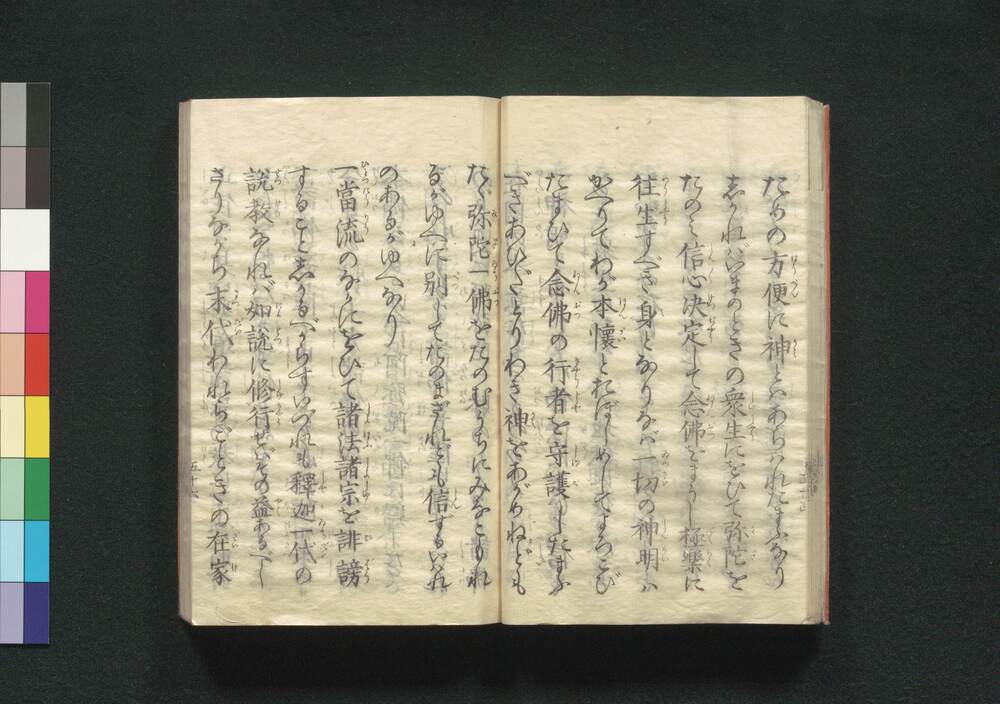 たちの方便に神とはあらはれたまふなり
しかれはいまのときの衆生にをひて弥陀を
たのみ信心决定して念佛をまうし極樂に
往生すべき身となりなば一切の神明は
かへりてわが本懐とおぼしめしてよろこび
たまひて念佛の行者を守護したまふ
べきあひだとりわき神をあがめねども
たゞ弥陀一佛をたのむうちにみなこもれ
るがゆへに別してたのまざれども信ずるいはれ
のあるがゆへなり
一當流のなかにをひて諸法諸宗を誹謗
することしかるへからすいづれも釋迦一代の
説教なれば如説に修行せばその益あるべし
さりながら末代われらごときの在家
五十六